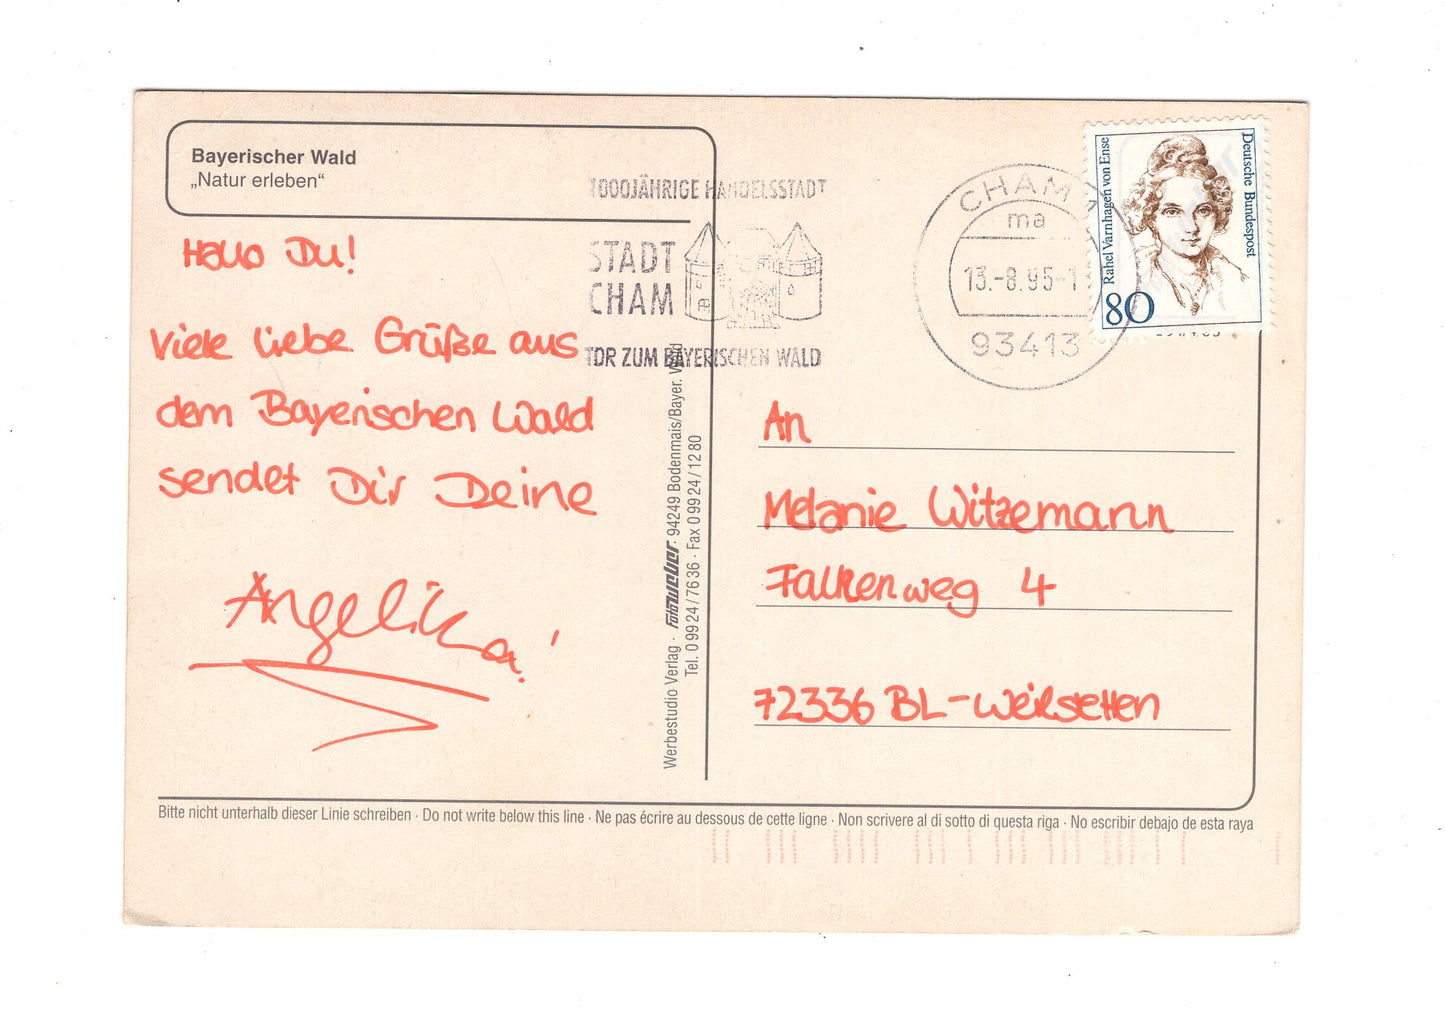 Bayerischer Wald
„Natur erleben“
Hallo Du!
Viele liebe Grüße aus
dem Bayerischen Wald
sendet Dir Deine
Angelika!
1000JÄHRIGE HANDELSSTADT
STADT
CHAM
TOR ZUM BAYERISCHEN WALD
CHAM
ma
13.-8.95-1
93413
Rahel Varnhagen von Ense
Deutsche Bundespost
80
Werbestudio Verlag · Foto Weber · 94249 Bodenmais/Bayer. Wald
Tel. 0 99 24/76 36 · Fax 0 99 24/12 80
An
Melanie Witzemann
Falkenweg 4
72336 BL-Weilstetten
Bitte nicht unterhalb dieser Linie schreiben · Do not write below this line · Ne pas écrire au dessous de cette ligne · Non scrivere al di sotto di questa riga · No escribir debajo de esta raya